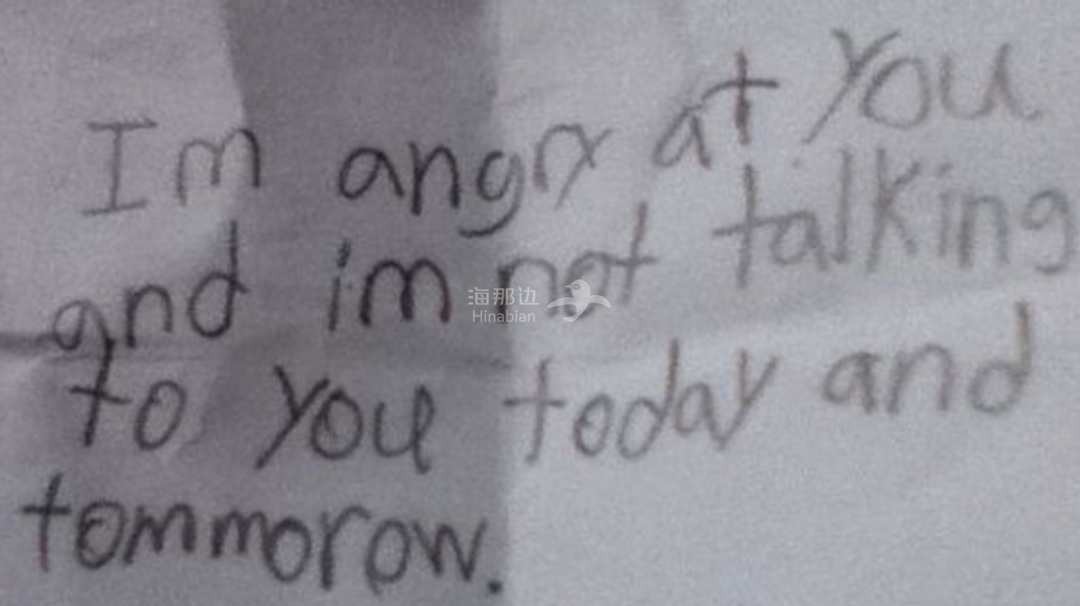 Im angry at you
and im not talking
海那边
Hinabian
to you today and
tommorow.